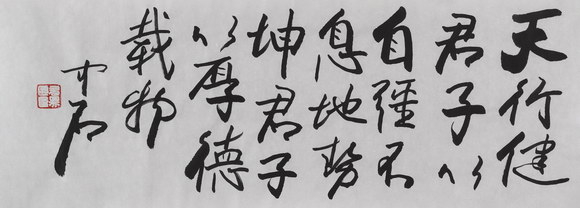 天行健
君子以
自彊不
息地勢
坤君子
以厚德
載物
中石